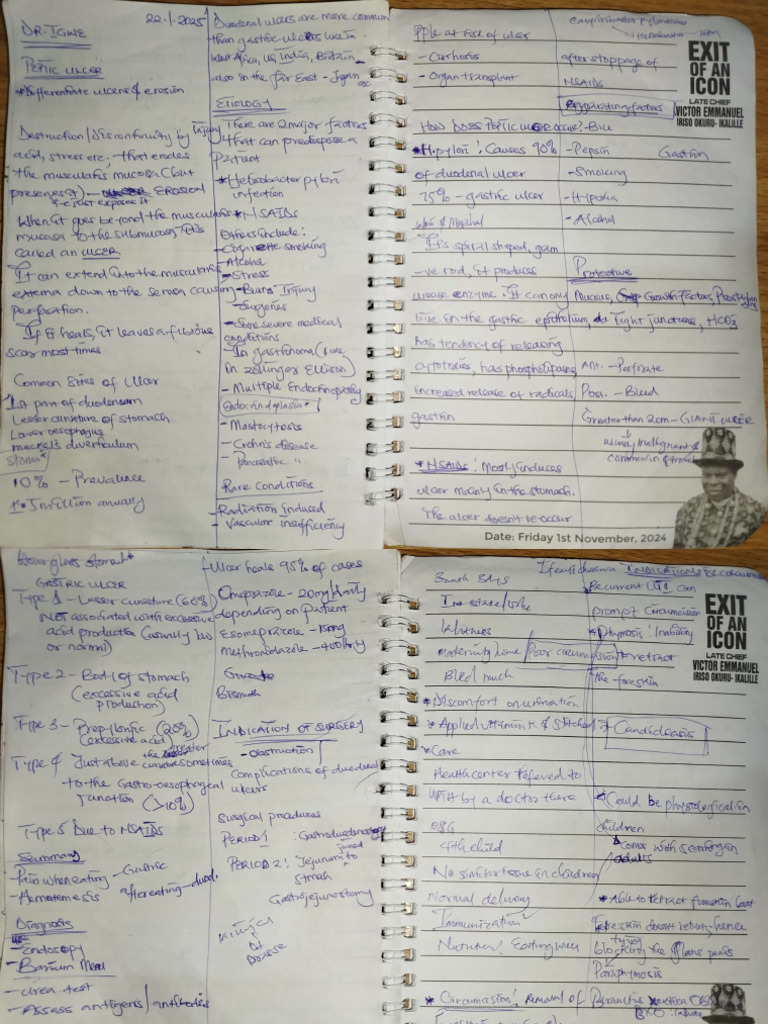 DR. IGWE
22.1.2025
PEPTIC ULCER
*Differentiate ulcers & erosion
Destruction/discontinuity by injury
acid, stress etc; that erodes
the muscularis mucosa (but
preserves it) — EROSION
& just expose it
When it goes beyond the muscularis
mucosa to the submucosa. It is
called an ULCER
It can extend into the muscularis
externa down to the serosa causing
perforation.
If it heals, it leaves a fibrous
scar most times
Common sites of Ulcer
1st part of duodenum
Lesser curvature of stomach
Lower oesophagus
meckel's diverticulum
Stoma
10% - Prevalence
5 million annually
Duodenal ulcers are more common
than gastric ulcers in
West Africa, US, India, Britain
also in the far East - Japan
ETIOLOGY
There are 2 major factors
that can predispose a
Patient
*Helicobacter pylori
infection
*NSAIDs
Others include:
- Cigarette smoking
- Alcohol
- Stress
- Burns Injury
- Surgeries
- Some severe medical
conditions
- In gastrinoma (like
in Zollinger Ellison)
- Multiple Endocrinopathy
Endocrine neoplasia*
- Mastocytosis
- Crohn's disease
- Pancreatic "
Rare conditions
- Radiation Induced
- Vascular insufficiency
Pple at risk of ulcer
- Cirrhosis
- Organ transplant
HOW DOES PEPTIC ULCER occur?
*H.pylori: Causes 90%
of duodenal ulcer
75% - gastric ulcer
It's spiral shaped, gram
-ve rod, it produces
urease enzyme. It can only
live in the gastric epithelium,
has tendency of releasing
cytotoxins, has phospholipases
increased release of radicals
gastrin
*NSAIDS: Mostly induces
ulcer mainly in the stomach.
The ulcer doesn't re-occur
Campylobacter Pyloridis
after stoppage of
NSAIDS
Aggravating factors
- Bile
- Pepsin
Gastrin
- Smoking
- Hypoxia
- Alcohol
Protective
Mucus, Growth Factors, Prostaglandins
Tight junctions, HCO3
Ant. - Perforate
Post. - Bleed
Greater than 2cm - GIANT ULCER
EXIT
OF AN
ICON
LATE CHIEF
VICTOR EMMANUEL
IRISO OKURU- IKALILLE
Date: Friday 1st November, 2024
Hourglass stomach*
GASTRIC ULCER
Type 1 - Lesser curvature (60%)
NOT associated with excessive
acid production (usually low
or normal)
Type 2 - Body of stomach
(excessive acid
production)
Type 3 - Prepyloric (20%)
(excessive acid)
Type 4 Just above the greater curvature sometimes
to the Gastro-oesophageal
junction (>10%)
Type 5 Due to NSAIDs
Summary
- Pain when eating - Gastric
- Hematemesis after eating - duod.
Diagnosis
- Endoscopy
- Barium Meal
- Urea test
- Assess antigens/antibodies
- Ulcer heals 95% of cases
Omeprazole - 20mg daily
depending on patient
Esomeprazole
Metronidazole - 400mg
Bismuth
INDICATION OF SURGERY
- Obstruction
Complications of duodenal
ulcers
Surgical procedures
PERIOD 1 : Gastroduodenostomy
PERIOD 2 : Jejunum joined to
stomach
Gastrojejunostomy
Disease
Maternity home
Bled much
*Discomfort on urination
*Applied vitamin K & stitched
*Care
Health center referred to
UPTH by a doctor there
4th child
No similar issue in children
Normal delivery
Immunization
Nutrition: Eating well
*Circumcision: removal of
INDICATIONS for circumcision
*Recurrent UTI can
prompt circumcision
Poor circumcision
*Phymosis: Inability
to retract
the foreskin
Candidiasis
*Could be physiological in
children
*Comes with scarring in
adults
*Able to retract foreskin but
foreskin doesn't return, hence
blocking the glans penis
Paraphymosis
EXIT
OF AN
ICON
LATE CHIEF
VICTOR EMMANUEL
IRISO OKURU- IKALILLE